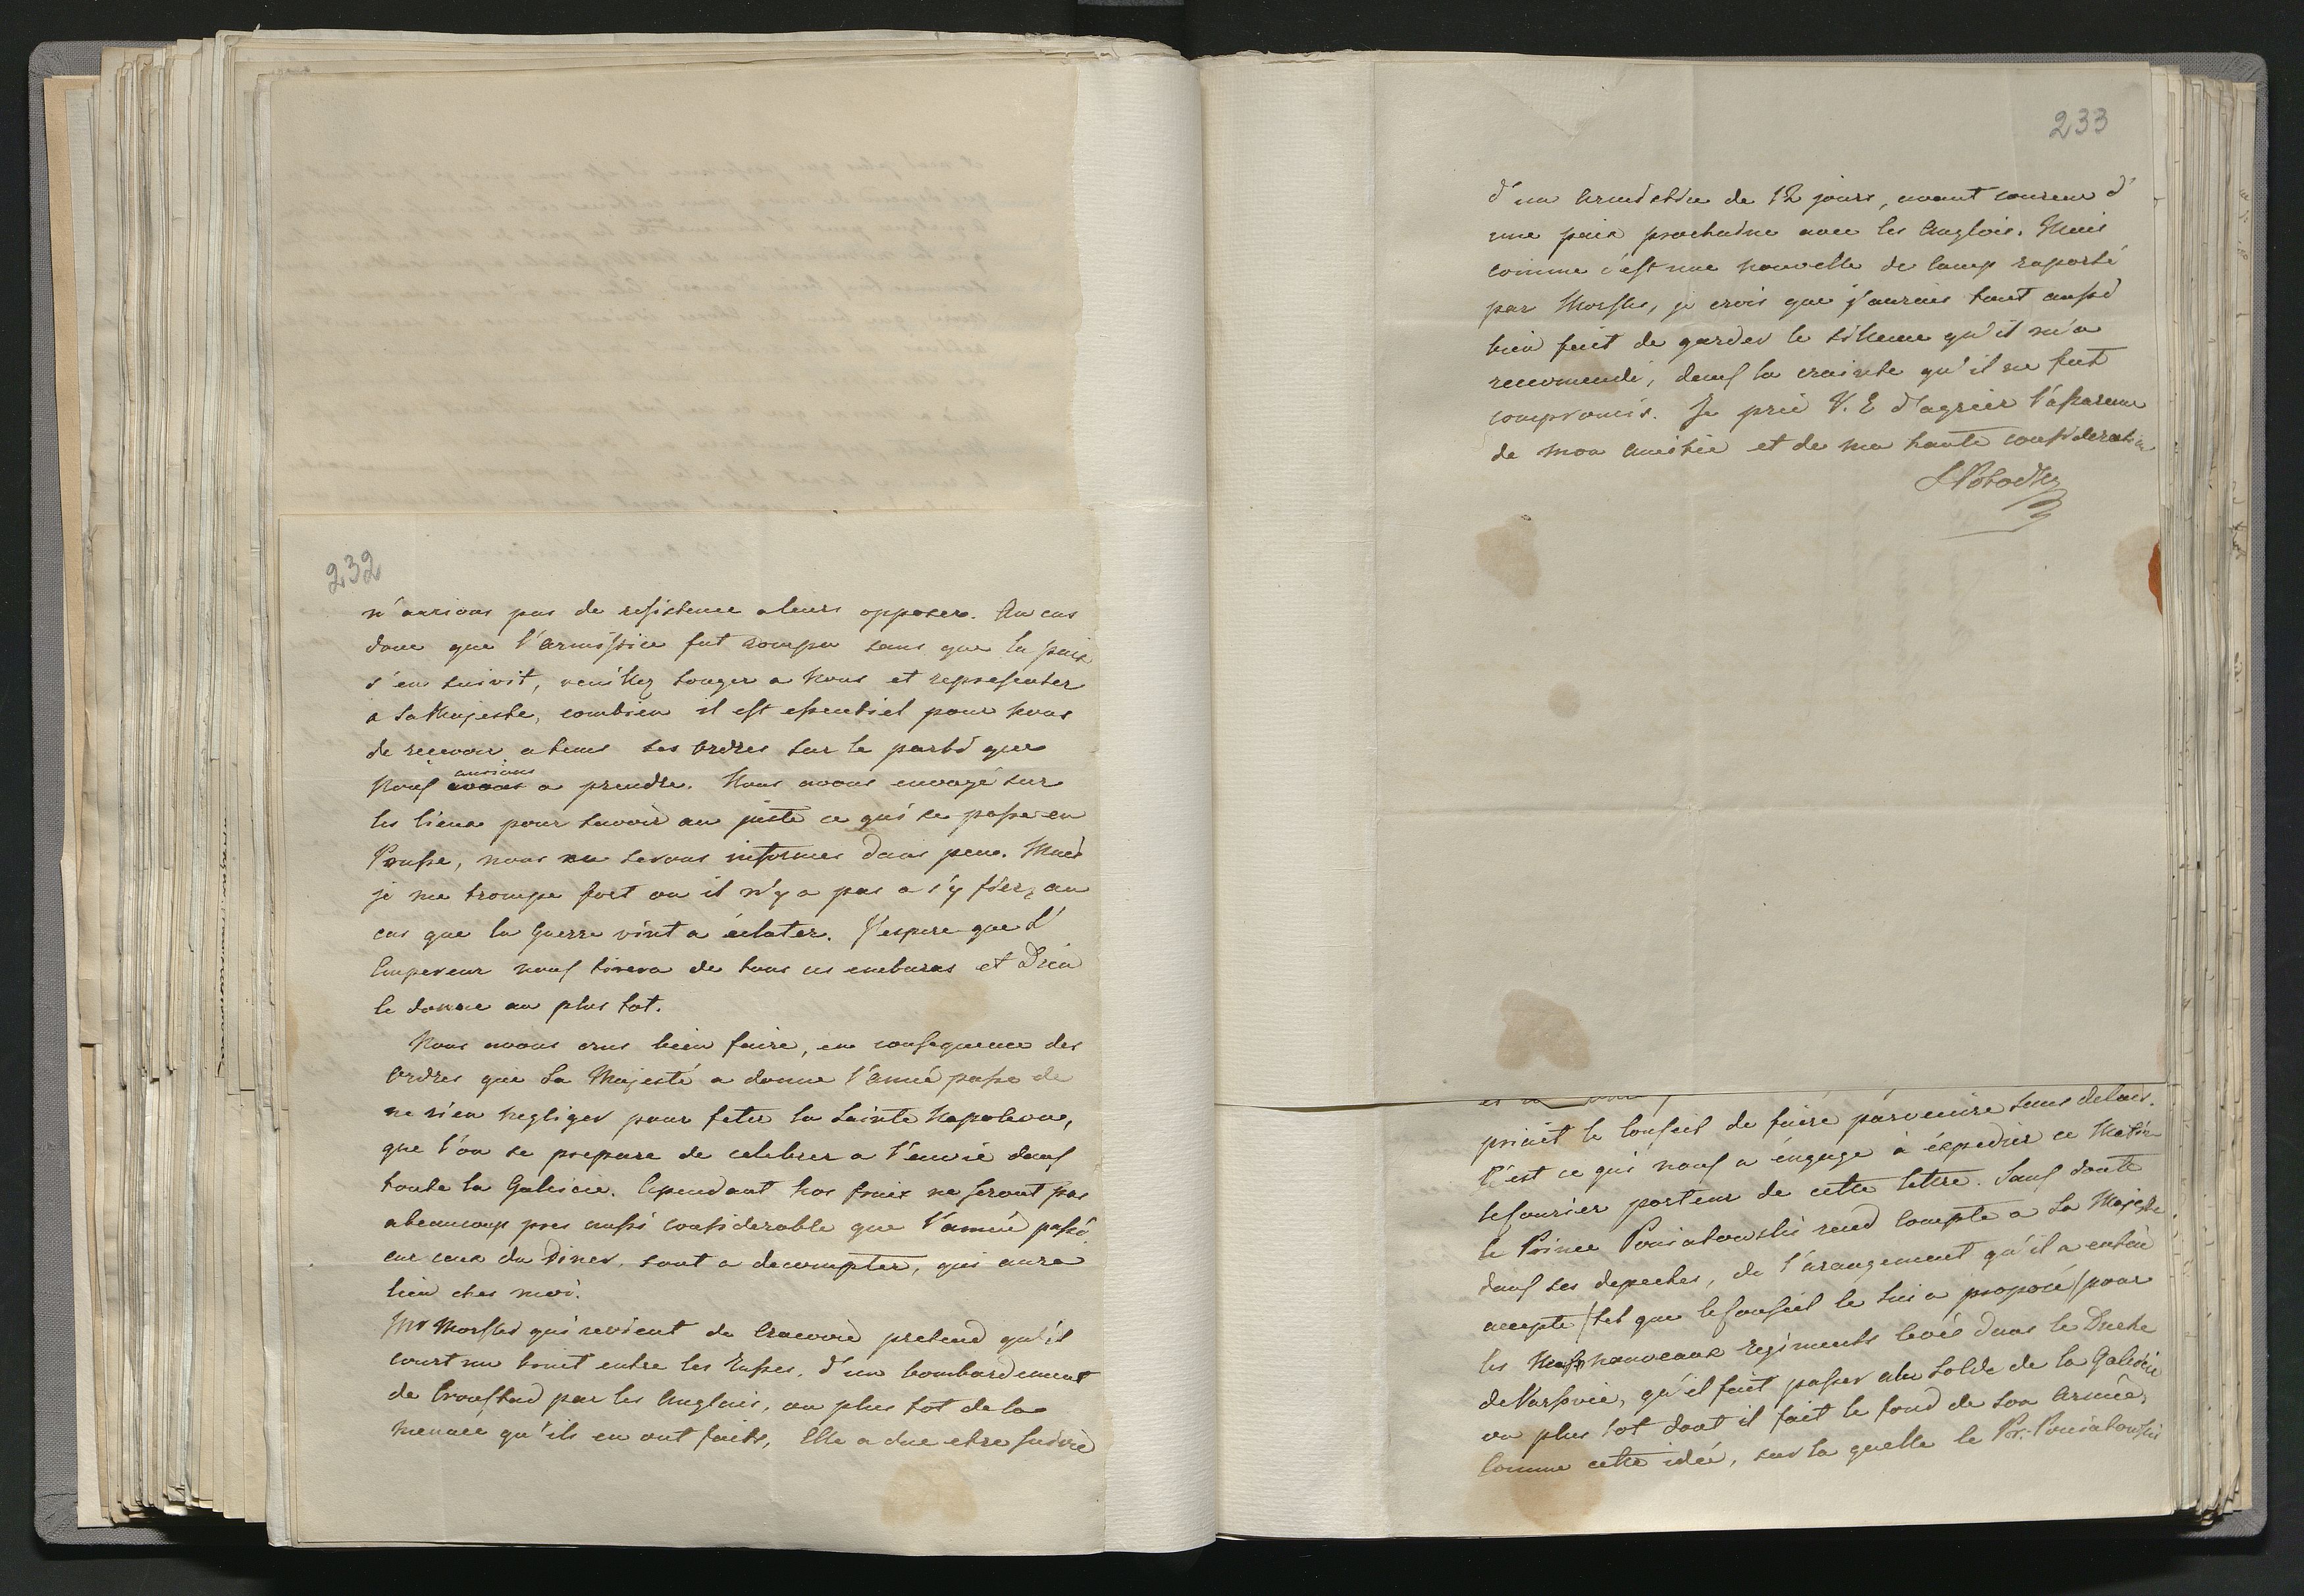 232
n'aurions pas de resistence a leurs opposer. Au cas
donc que l'armistice fut rompu sans que la paix
s'en suivit, veuillez songer a Nous et representer
a Sa Majeste, combien il est essentiel pour nous
de recevoir a tems ses Ordres sur le parti que
aurions
Nous avons a prendre. Nous avons envoyé sur
les lieux pour savoir au juste ce qui se passe en
Prusse, nous en serons informes dans peu. Mais
je me trompe fort ou il n'y a pas a s'y fier, au
cas que la Guerre vint a éclater. J'espere que L'
Empereur nous tirera de tous ces embaras et Dieu
le donne au plus tot.
Nous avons crus bien faire, en consequence des
Ordres que Sa Majesté a donne l'année passe de
ne rien negliger pour feter la Sainte Napoleon,
que l'on se prepare de celebrer a l'envie dans
toute la Galicie. Cependant nos fraix ne seront pas
abeaucoup pres aussi considerable que l'année passé,
car ceux du Diner, sont a decompter, qui aura
lieu ches moi.
Mr Morski qui revient de Cracovie pretend qu'il
court un bruit entre les Russes, d'un bombardement
de Cronstad par les Anglais, ou plus tot de la
menace qu'ils en ont faite, Elle a due etre suivie
233
d'un Armistice de 12 jours, avant coureur d'
une paix prochaine avec les Anglois. Mais
comme c'est une nouvelle de Camp raporté
par Morski, je crois que j'aurais tout aussi
bien fait de garder le silence qu'il m'a
recomendé, dans la crainte qu'il ne fut
compromis. Je prie V. E d'agréer l'assurence
de mon amitié et de ma haute consideration
SPotocki
priait le Conseil de faire parvenire sans delais.
C'est ce qui nous a éngagé à éxpedier ce Matin
le Courier porteur de cette lettre. Sans doute
le Prince Poniatowski rend Compte a Sa Majeste
dans ses depeches, de l'arangement qu'il a enfin
accepte /tel que le Conseil le lui a proposé/ pour
les nouveaux regiments levés dans le Duche
de Varsovie, qu'il fait passer a la Solde de la Galicie
ou plus tot dont il fait le fond de son Armée,
Comme cette idée, sur la quelle le Pr. Poniatowski